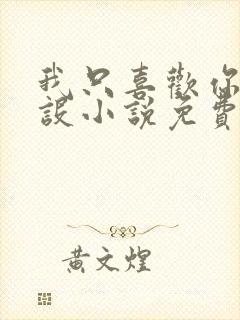 我只喜歡你
設小說免費
黃文煌